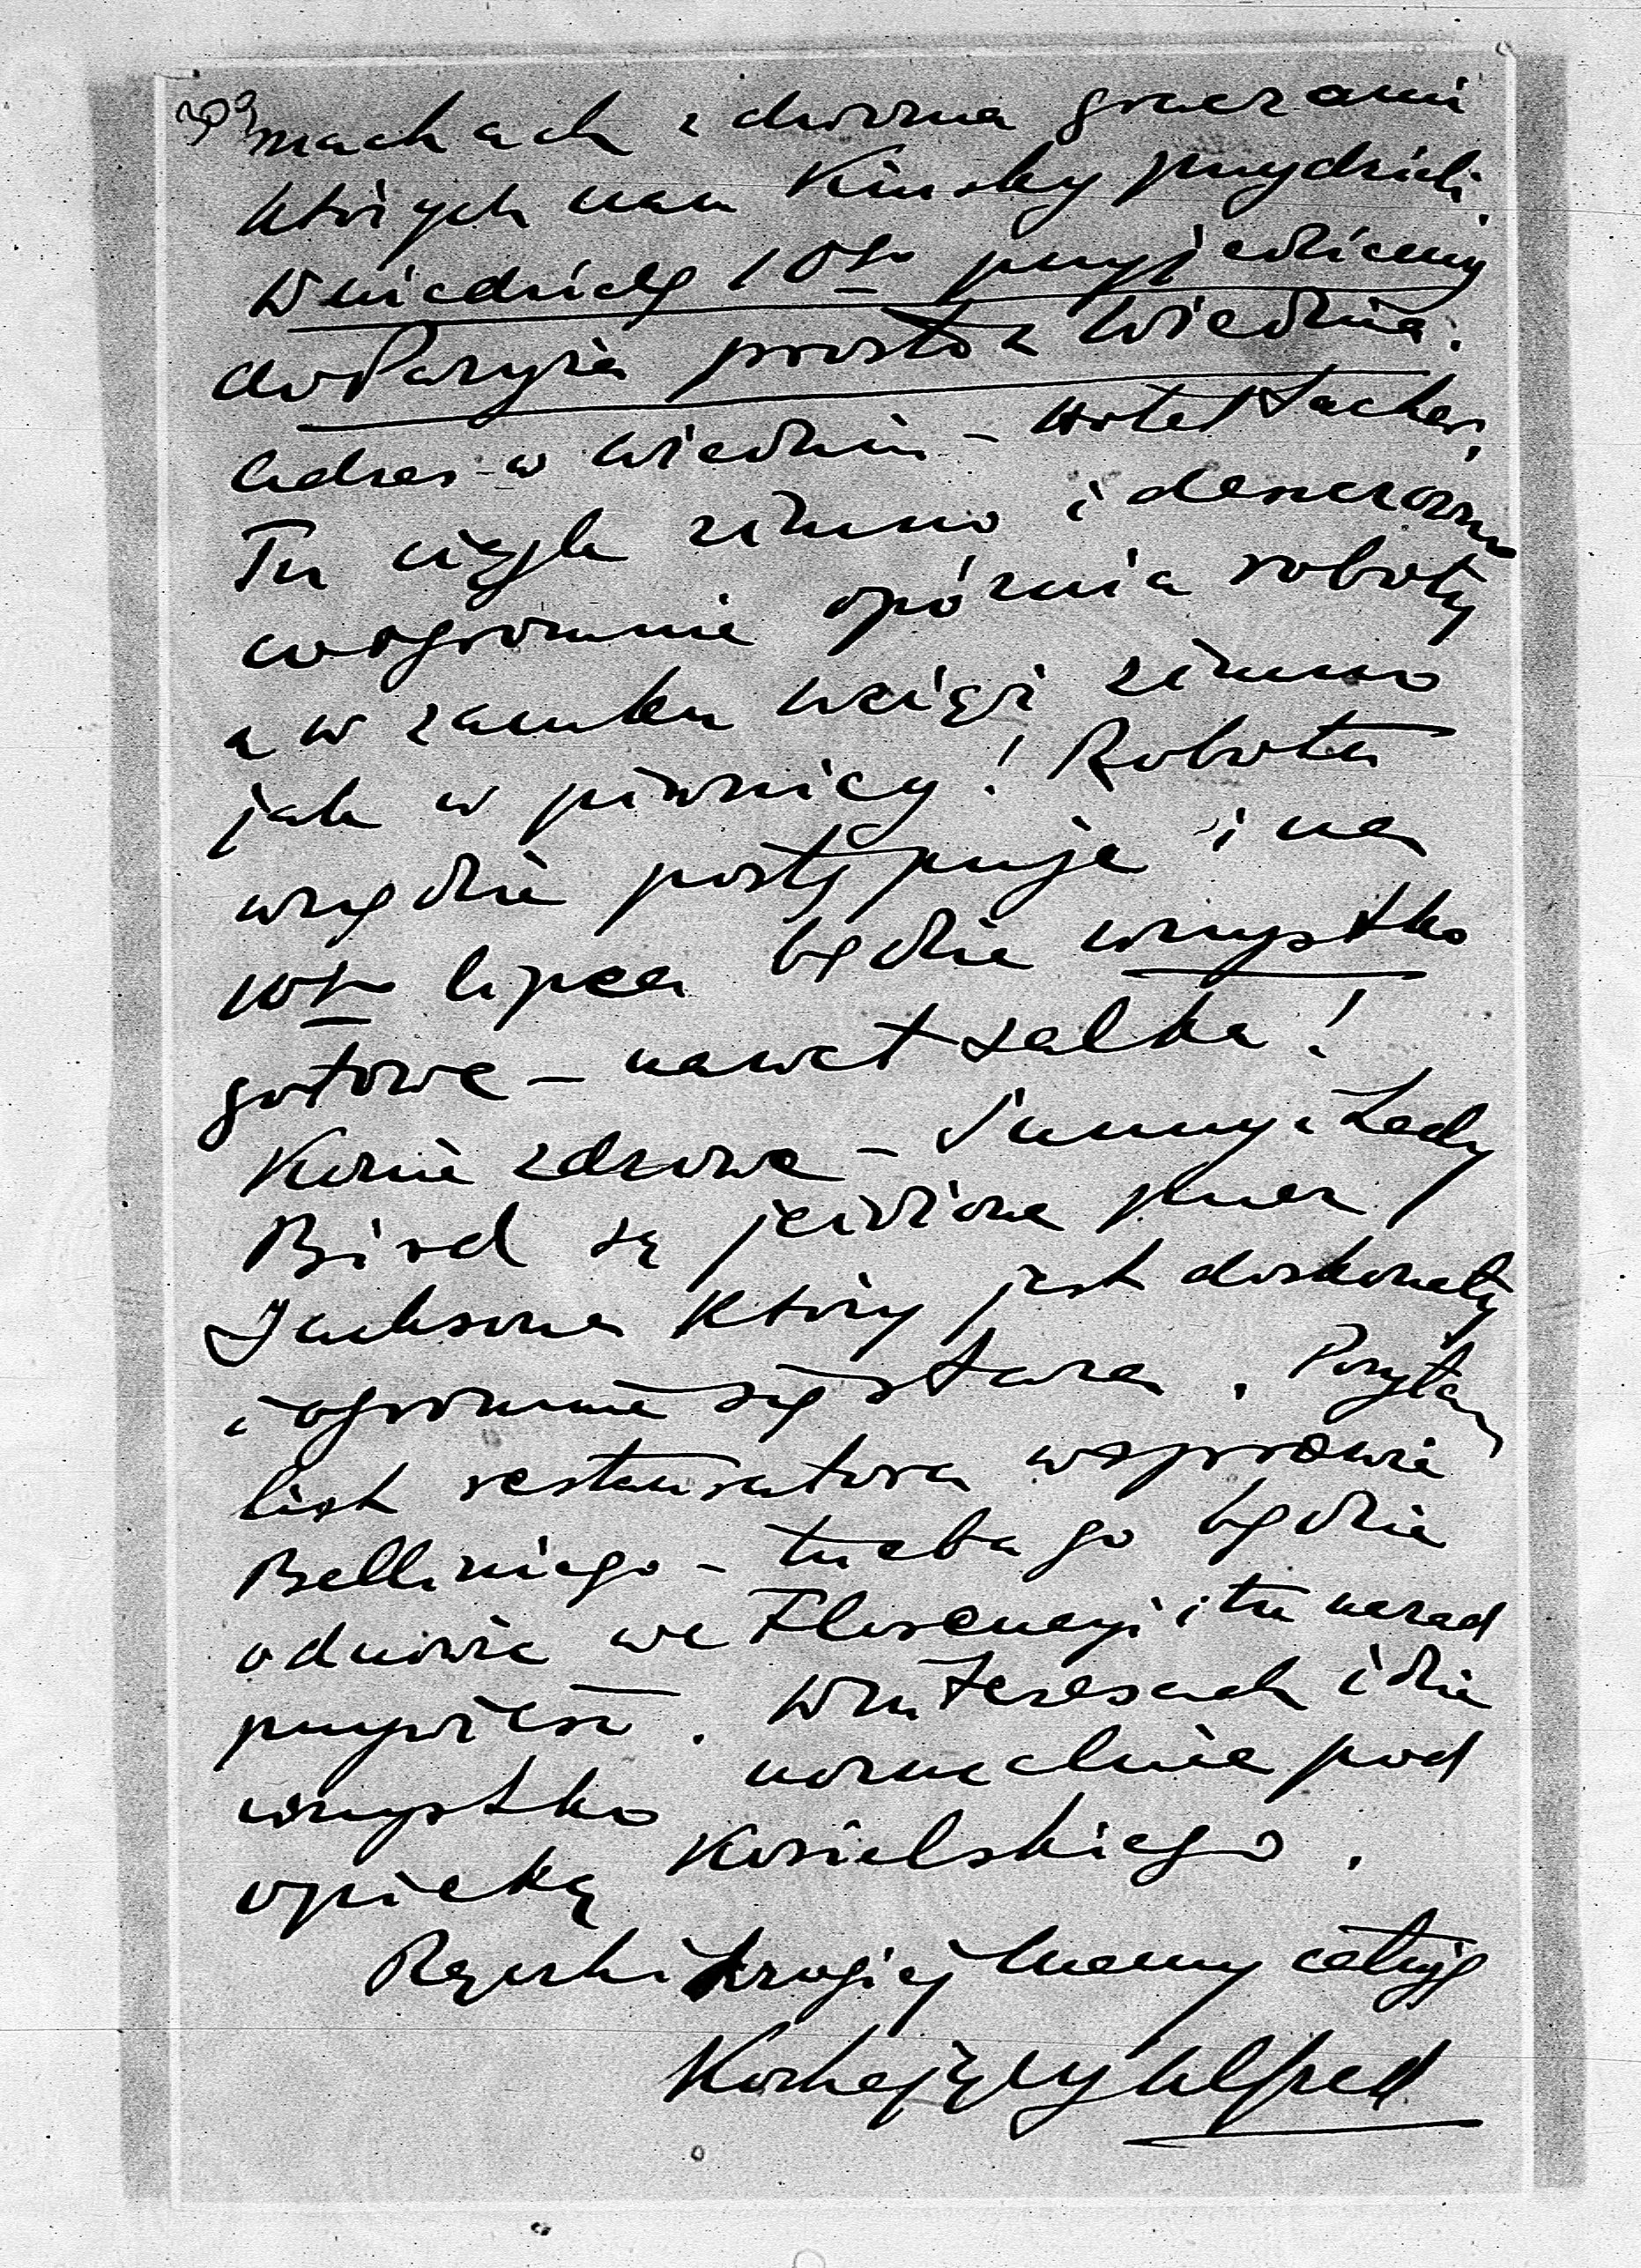 machach z dwoma graczami
których nam Kinsky przydzieli.
W niedzielę 10go przyjedziemy
do Paryża prosto z Wiednia.
Adres w Wiedniu – Hotel Sacher.
Tu ciągle zimno i deszczowo
co ogromnie opóźnia roboty
a w zamku wciąż zimno
jak w piwnicy! Robota
wszędzie postępuje i na
lipca będzie wszystko
gotowe – nawet salka!
Konie zdrowe – Sunny i Lady
Bird są jeżdżone przez
Jacksona który jest doskonały
i ogromnie się stara. Posyłam
list restauratora w sprawie
Belliniego – trzeba go będzie
odnowić we Florencyi i tu nazad
przywieść. W interesach idzie
wszystko normalnie pod
opieką Kosielskiego.
Rączki Drogiej Mamy całuję
Kochający Alfred